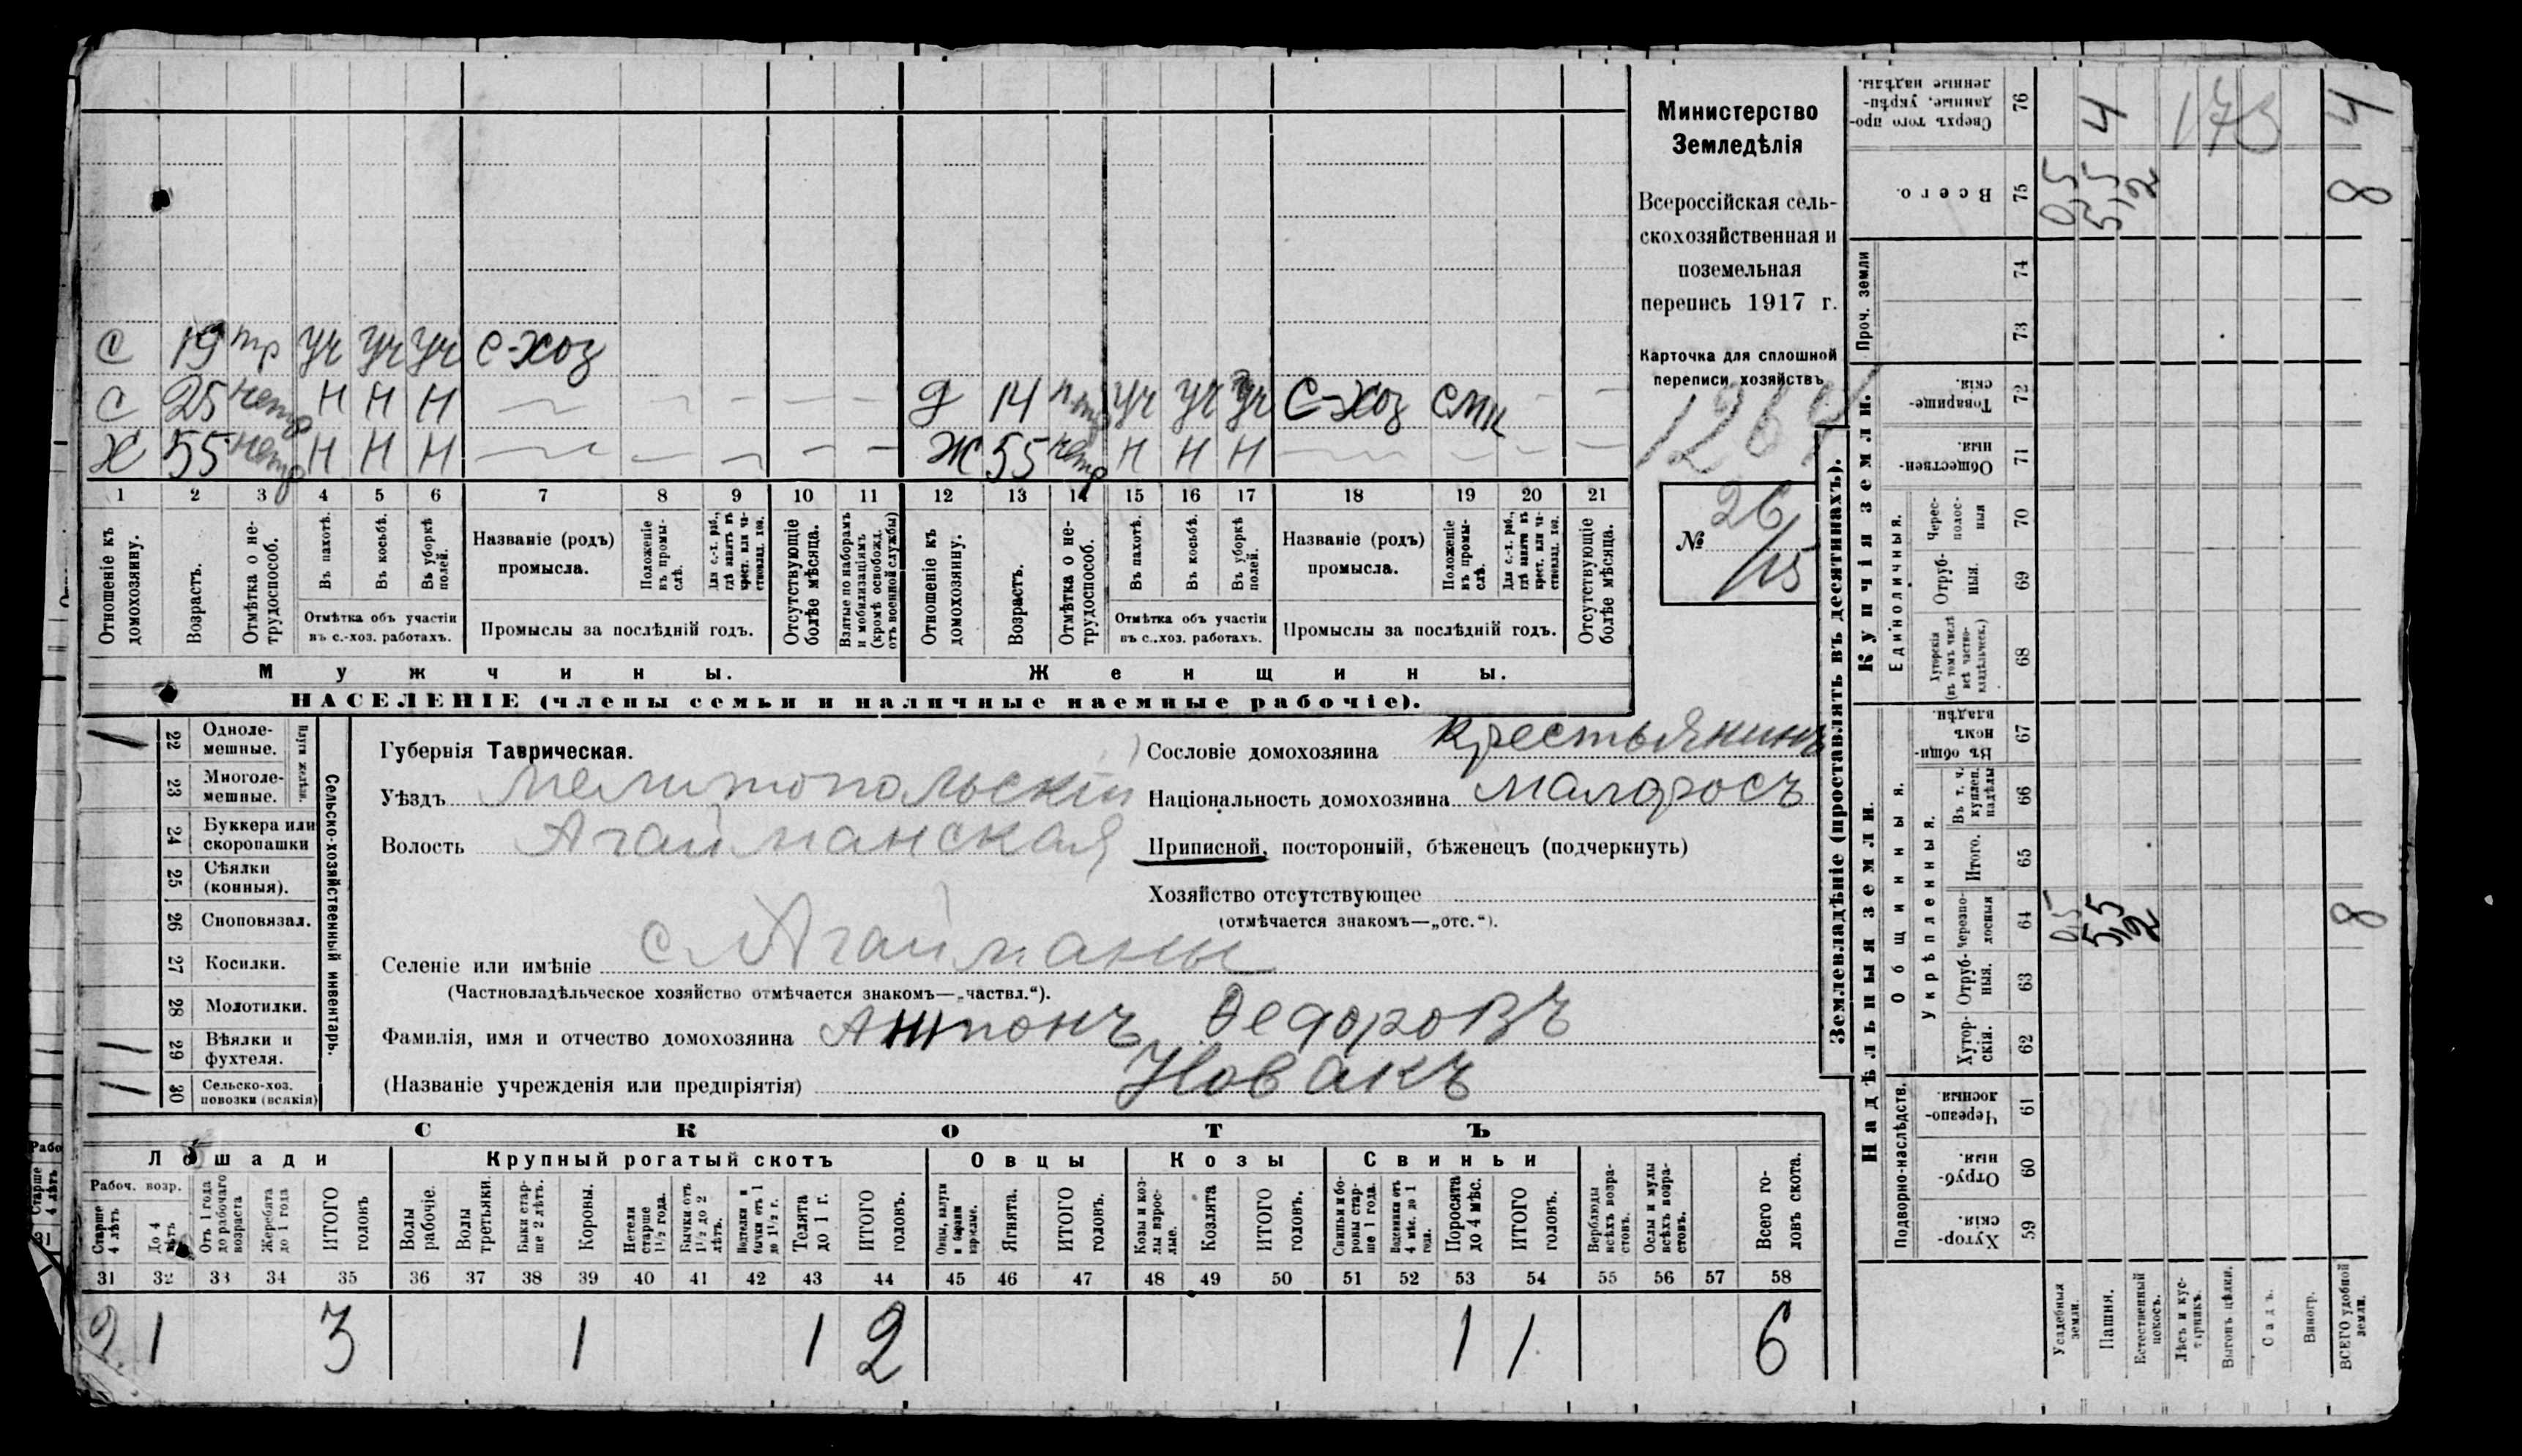 С 19 тр уч уч уч С-хоз
С 25 нетр Н Н Н — — — — — Д 14 уч уч уч С-хоз — —
Х 55 нетр Н Н Н — — — — — Ж 55 нетр Н Н Н — — — —
1 2 3 4 5 6 7 8 9 10 11 12 13 14 15 16 17 18 19 20 21
Отношеніе къ домохозяину.
Возрастъ.
Отмѣтка о не-трудоспособ.
Въ пахотѣ.
Въ косьбѣ.
Въ уборкѣ полей.
Отмѣтка объ участіи въ с.-хоз. работахъ.
Названіе (родъ) промысла.
Положеніе въ промы-слѣ.
Для с.-х. раб., гдѣ занятъ въ крест. или ча-стновлад. хоз.
Промыслы за послѣдній годъ.
Отсутствующіе болѣе мѣсяца.
Взятые по наборамъ и мобилизаціямъ (кромѣ освобожд. отъ военной службы)
Отношеніе къ домохозяину.
Возрастъ.
Отмѣтка о не-трудоспособ.
Въ пахотѣ.
Въ косьбѣ.
Въ уборкѣ полей.
Отмѣтка объ участіи въ с..хоз. работахъ.
Названіе (родъ) промысла.
Положеніе въ промы-слѣ.
Для с.-х. раб., гдѣ занята въ крест. или ча-стновлад. хоз.
Промыслы за послѣдній годъ.
Отсутствующіе болѣе мѣсяца.
Мужчины.
Женщины.
НАСЕЛЕНІЕ (члены семьи и наличные наемные рабочіе).
Министерство
Земледѣлія
Всероссійская сель-
скохозяйственная и
поземельная
перепись 1917 г.
Карточка для сплошной
переписи хозяйствъ
1264
№ 26/15
1 22 Одноле-мешные.
23 Многоле-мешные.
Плуги желѣзн.
24 Буккера или скоропашки
25 Сѣялки (конныя).
26 Сноповязал.
27 Косилки.
28 Молотилки.
1 29 Вѣялки и фухтеля.
1 30 Сельско-хоз. повозки (всякія)
Сельско-хозяйственный инвентарь.
Губернія Таврическая.
Уѣздъ Мелитопольскій
Волость Агайманская
Селеніе или имѣніе с. Агайманы
(Частновладѣльческое хозяйство отмѣчается знакомъ—„частвл.“).
Фамилія, имя и отчество домохозяина Антонъ Ѳедоровъ
(Названіе учрежденія или предпріятія) Новакъ
Сословіе домохозяина Крестьянинъ
Національность домохозяина малоросъ
Приписной, посторонній, бѣженецъ (подчеркнуть)
Хозяйство отсутствующее
(отмѣчается знакомъ—„отс.“).
СКОТЪ
Лошади Крупный рогатый скотъ Овцы Козы Свиньи
Рабоч. возр.
Старше 4 лѣтъ
До 4 лѣтъ
Отъ 1 года до рабочаго возраста
Жеребята до 1 года
ИТОГО головъ
Волы рабочіе.
Волы третьяки.
Быки стар-ше 2 лѣтъ.
Коровы.
Нетели старше 1½ года.
Бычки отъ 1½ до 2 лѣтъ.
Телки и бычки отъ 1 до 1½ г.
Телята до 1 г.
ИТОГО головъ.
Овцы, валухи и бараны взрослые.
Ягнята.
ИТОГО головъ.
Козы и коз-лы взрос-лые.
Козлята
ИТОГО головъ.
Свиньи и бо-ровы стар-ше 1 года.
Подсвинки отъ 4 мѣс. до 1 года.
Поросята до 4 мѣс.
ИТОГО головъ.
Верблюды всѣхъ возра-стовъ.
Ослы и мулы всѣхъ возра-стовъ.
Всего го-ловъ скота.
31 32 33 34 35 36 37 38 39 40 41 42 43 44 45 46 47 48 49 50 51 52 53 54 55 56 57 58
2 1 3 1 1 2 1 1 6
Землевладѣніе (проставлять въ десятинахъ).
Сверхъ того про-данные, укрѣп-ленные надѣлы. 76 4 173 4
Всего. 75 0,5 5,5 2 8
Проч. земли 74
73
Купчія земли.
Товарище-скія. 72
Обществен-ныя. 71
Единоличныя.
Черес-полос-ныя 70
Отруб-ныя. 69
Хуторскія (въ томъ числѣ всѣ частно-владѣльческ.) 68
Надѣльныя земли.
Общинныя.
Въ общи-номъ владѣн. 67
Укрѣпленныя.
Въ т. ч. куплен. надѣлы 66
Итого. 65
Черезпо-лосныя 64 0,5 5,5 2 8
Отруб-ныя. 63
Хутор-скія. 62
Подворно-наслѣдств.
Черезпо-лосныя. 61
Отруб-ныя. 60
Хутор-скія. 59
Усадебныя земли.
Пашня.
Естественный покосъ.
Лѣсъ и кус-тарникъ.
Выгонъ цѣлин.
Садъ.
Виногр.
ВСЕГО удобной земли.
Рабо
Старше 4 лѣтъ
31